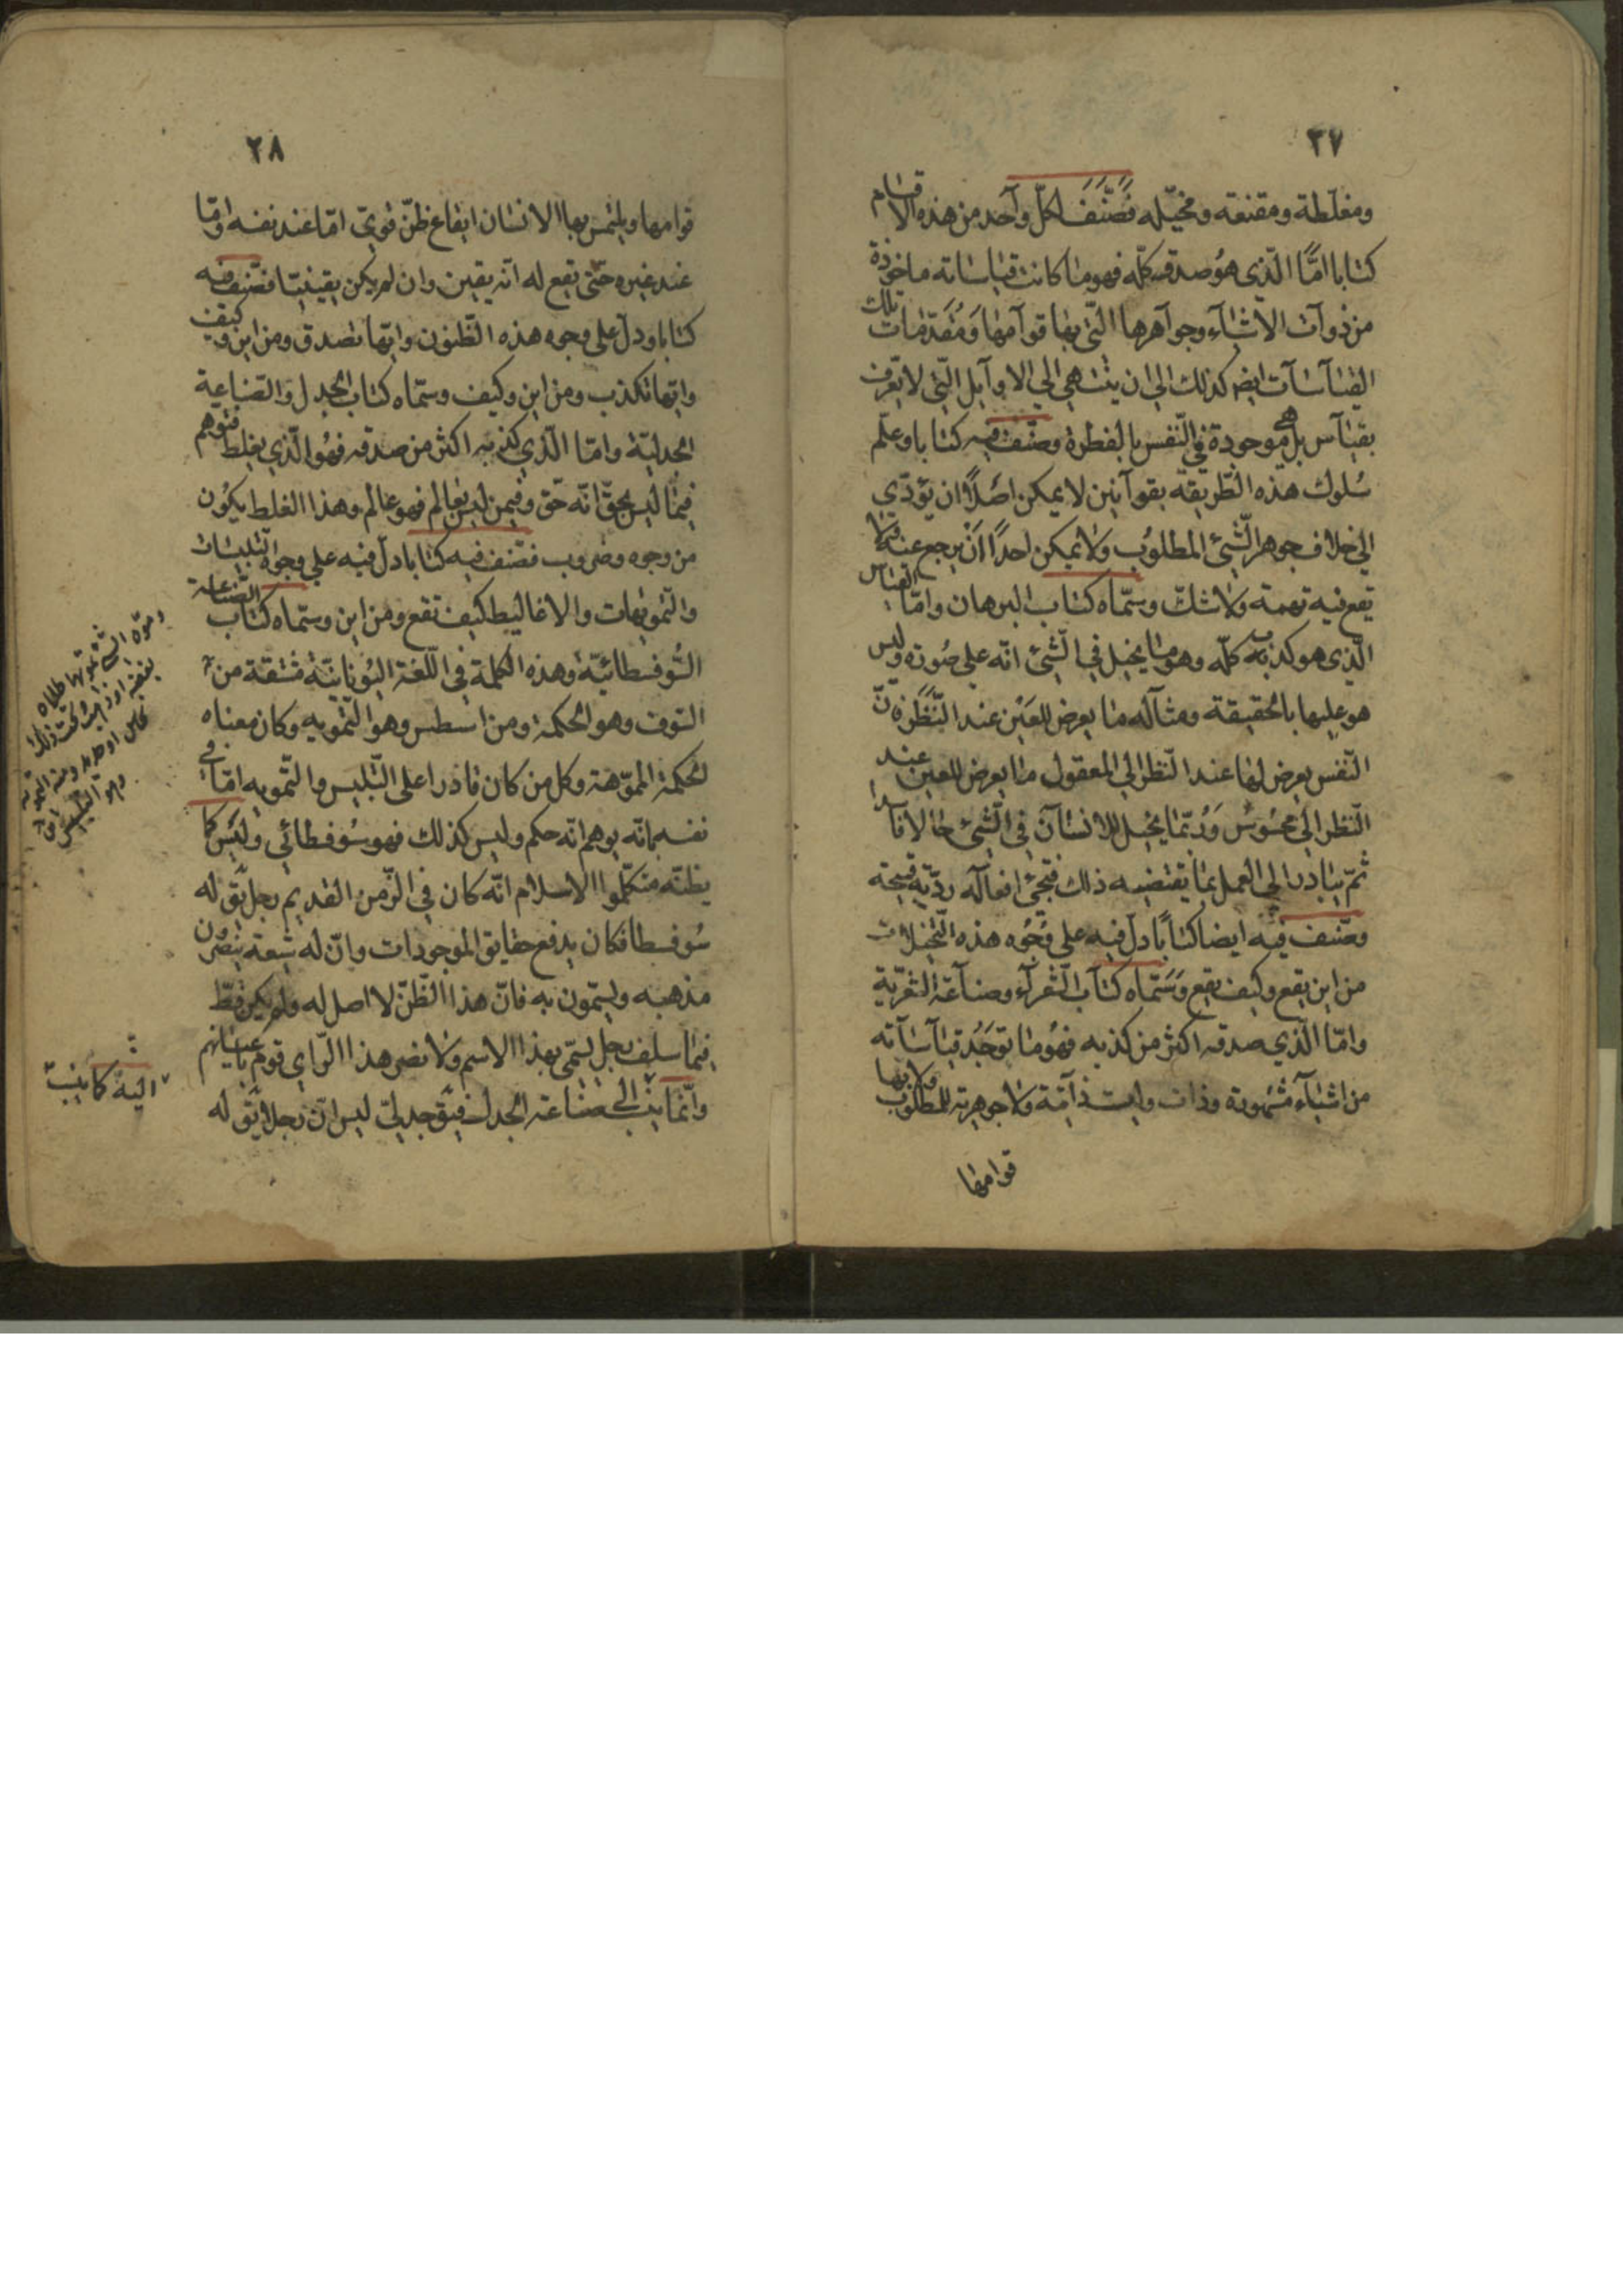 ٢٧
ومغلطة ومقنعة ومخيّله فصَنَّفَ لكلّ وآحد من هذه الاقسام
كتابا امّا الّذى هو صدقه كلّه فهو ما كانت قياساته ماخوذة
من ذوآت الاشيآء وجوآهرها الّتى بها قوآمها ومُقدّمات تلك
القياسآت ايضـ كذلك الى ان يتناهى الى الاوآيل الّتى لا تعرف
بقيآس بل هى موجودة فى النّفس بالفطرة وصنّف فيه كتابا وعلّم
سُلوك هذه الطّريقه بقوآنين لا يمكن اصْلًا ان يؤدّى
الى خلاف جوهر الشّئ المطلوُب ولا يمكن احدًا انْ يرجع عنه
يقع فيه تهمة ولا شكّ وسمّاه كتاب البرهان وامّا القياس
الّذى هو كذبه كلّه وهو ما يخيل فى الشّئ انّه على صُورة وليس
هو عليها بالحقيقة ومثآله ما يعرض للعَيْن عند النَّظَره لانّ
النّفس يعرض لها عند النّظر الى المعقول ما يعرض للعين عند
النّظر الى محسُوس وَرُبّما يخيل للانسآن فى الشّئ حالا فاسدا
ثمّ يبادر الى العمل بما يقتضيه ذلك فتجئ افعآله رديّة قبيحة
وصنّف فيه ايضا كتابًا دلّ فيه على وُجُوه هذه التّخيلات
من اين يقع وكيف يقع وَسَمّاه كتآب الشّعرآء وصناعَة الشعريّة
وامّا الّذي صدقه اكثر من كذبه فهُو ما توجَدُ قيآسآته
من اشيآء مشهورة وذات وليست ذآتية ولا جوهرية للمطلوب ولا بها
قوامها
٢٨
قوامها ويلتمس بها الانسان ايقاع ظنّ قوىّ امّا عند نفسه وامّا
عند غيره حتّى يقع له انّه يقين وان لم يكن يقينيّا فصّنف فيه
كتابا ودلّ على وجوه هذه الظّنون وايّها تصدق ومن اين وكيف
وايّها تكذب ومن اين وكيف وسمّاه كتاب الجدل والصّناعة
الجدليّة وامّا الّذي كذبه اكثر من صدقه فهُو الّذي يغلط فتوهم
فيما ليس بحقّ انّه حقّ وفيمن ليس بعالم فهو عالم وهذا الغلط يكوُن
من وجوه وضروب فصّنف فيه كتابا دلّ فيه على وجوه التلبيسات
والتّمويهات والاغاليط كيف تقع ومن اين وسمّاه كتاب الصّناعة
السُّوفسطائيّة وهذه الكلمة فى اللّغة اليُونانيّة مشتقة من
السّوف وهو الحكمة ومن اسطس وهو التّمويه وكان معناه
الحكمة المموّهة وكل من كان قادرا على التّلبيس والتّمويه امّا فى
نفسه بانّه يوهم انّه حكيم وليس كذلك فهو سُوفسطائى وليَس كما
يظنّه متكلّموا الاسلام انّه كان فى الزّمن القديم رجل يقَ له
سُوفسطا فكان يدفع حقايق الموجودات وانّ له شيعة ينصُرون
مذهبه ويسمّون به فانّ هذا الظّنّ لا اصل له ولم يكن قطّ
فيما سلف رجل يسمّى بهذا الاسم ولا نصر هذا الرّاى قوم باعيانهم
وانّما ينسب الى صناعة الجدل فيقَ جدلىّ ليس انّ رجلا يقَ له
اليه كما ينسب